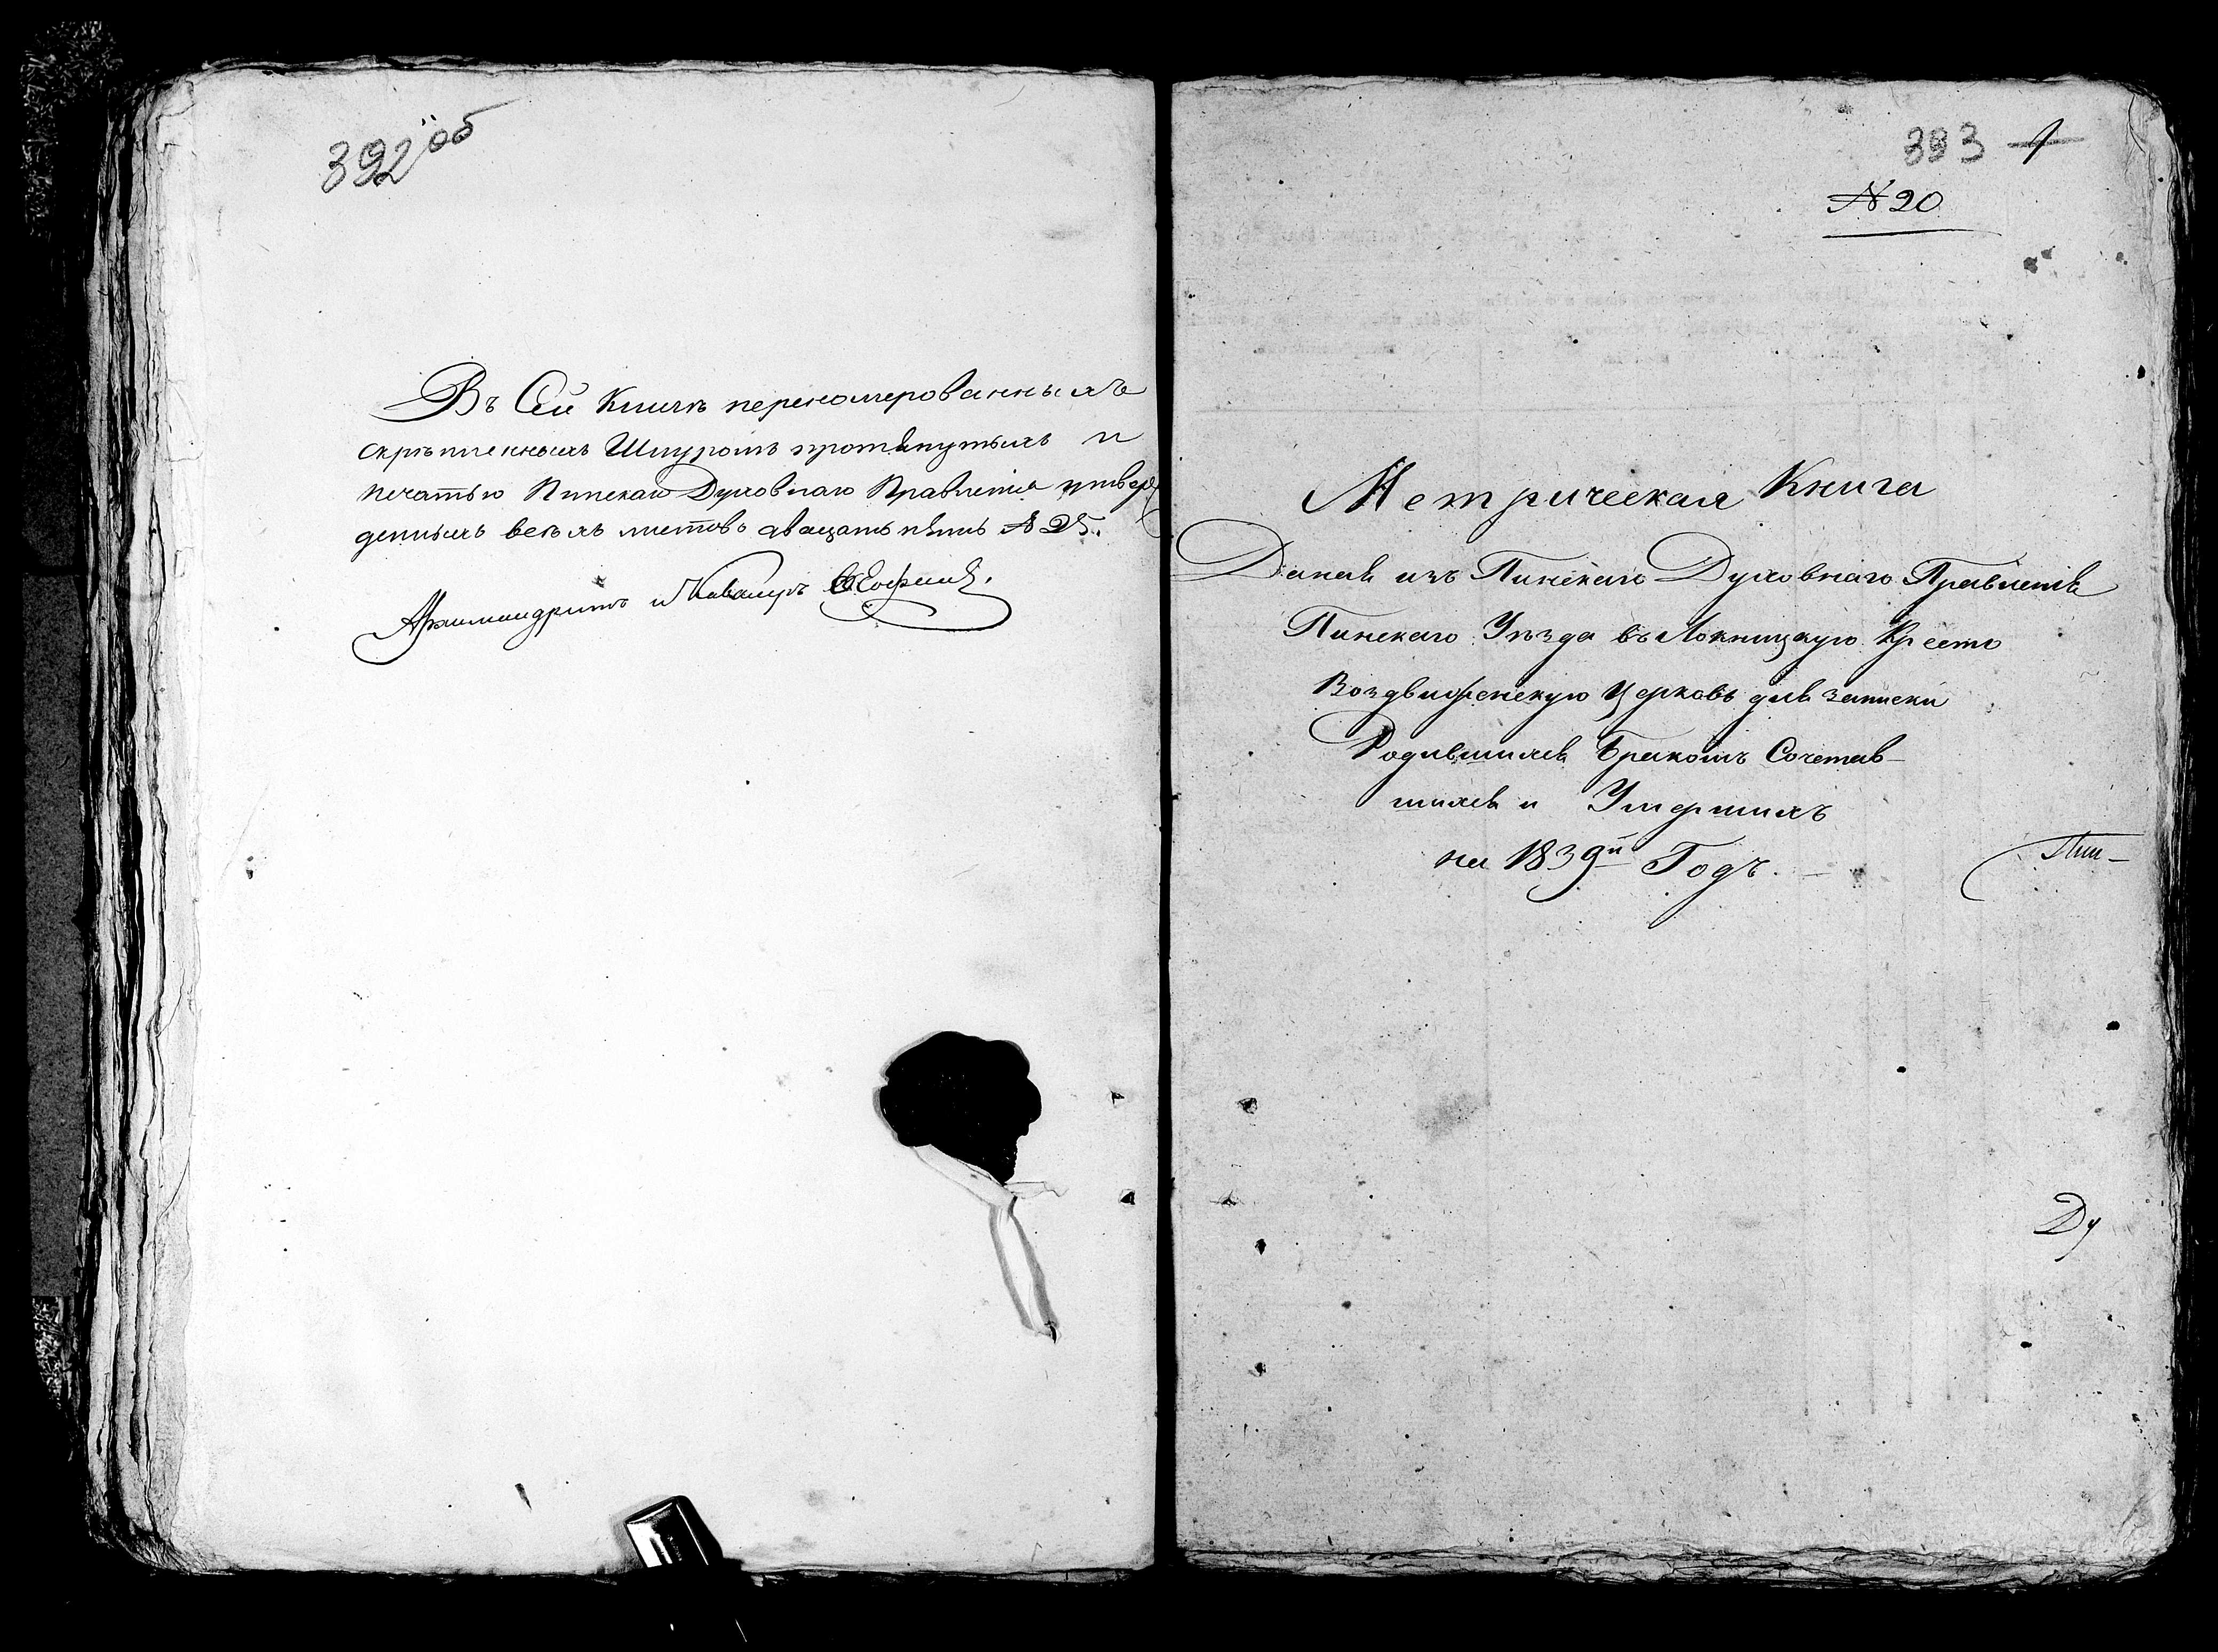 392 об
Въ Сей Книгѣ переномерованныхъ
скрѣпленныхъ Шнуромъ протянутыхъ и
печатью Пинскаго Духовнаго Правленія утверж
денныхъ всѣхъ листовъ двацать пять № 25.
Архимандритъ и Кавалеръ
393 1
№ 20
Метрическая Книга
Даная изъ Пинскаго Духовнаго Правленія
Пинскаго Уѣзда въ Локницкую Кресто
Воздвиженскую Церковь для записки
Родившихся Бракомъ Сочетав-
шихся и Умершихъ
на 1839й Годъ.
Пин-
Ду